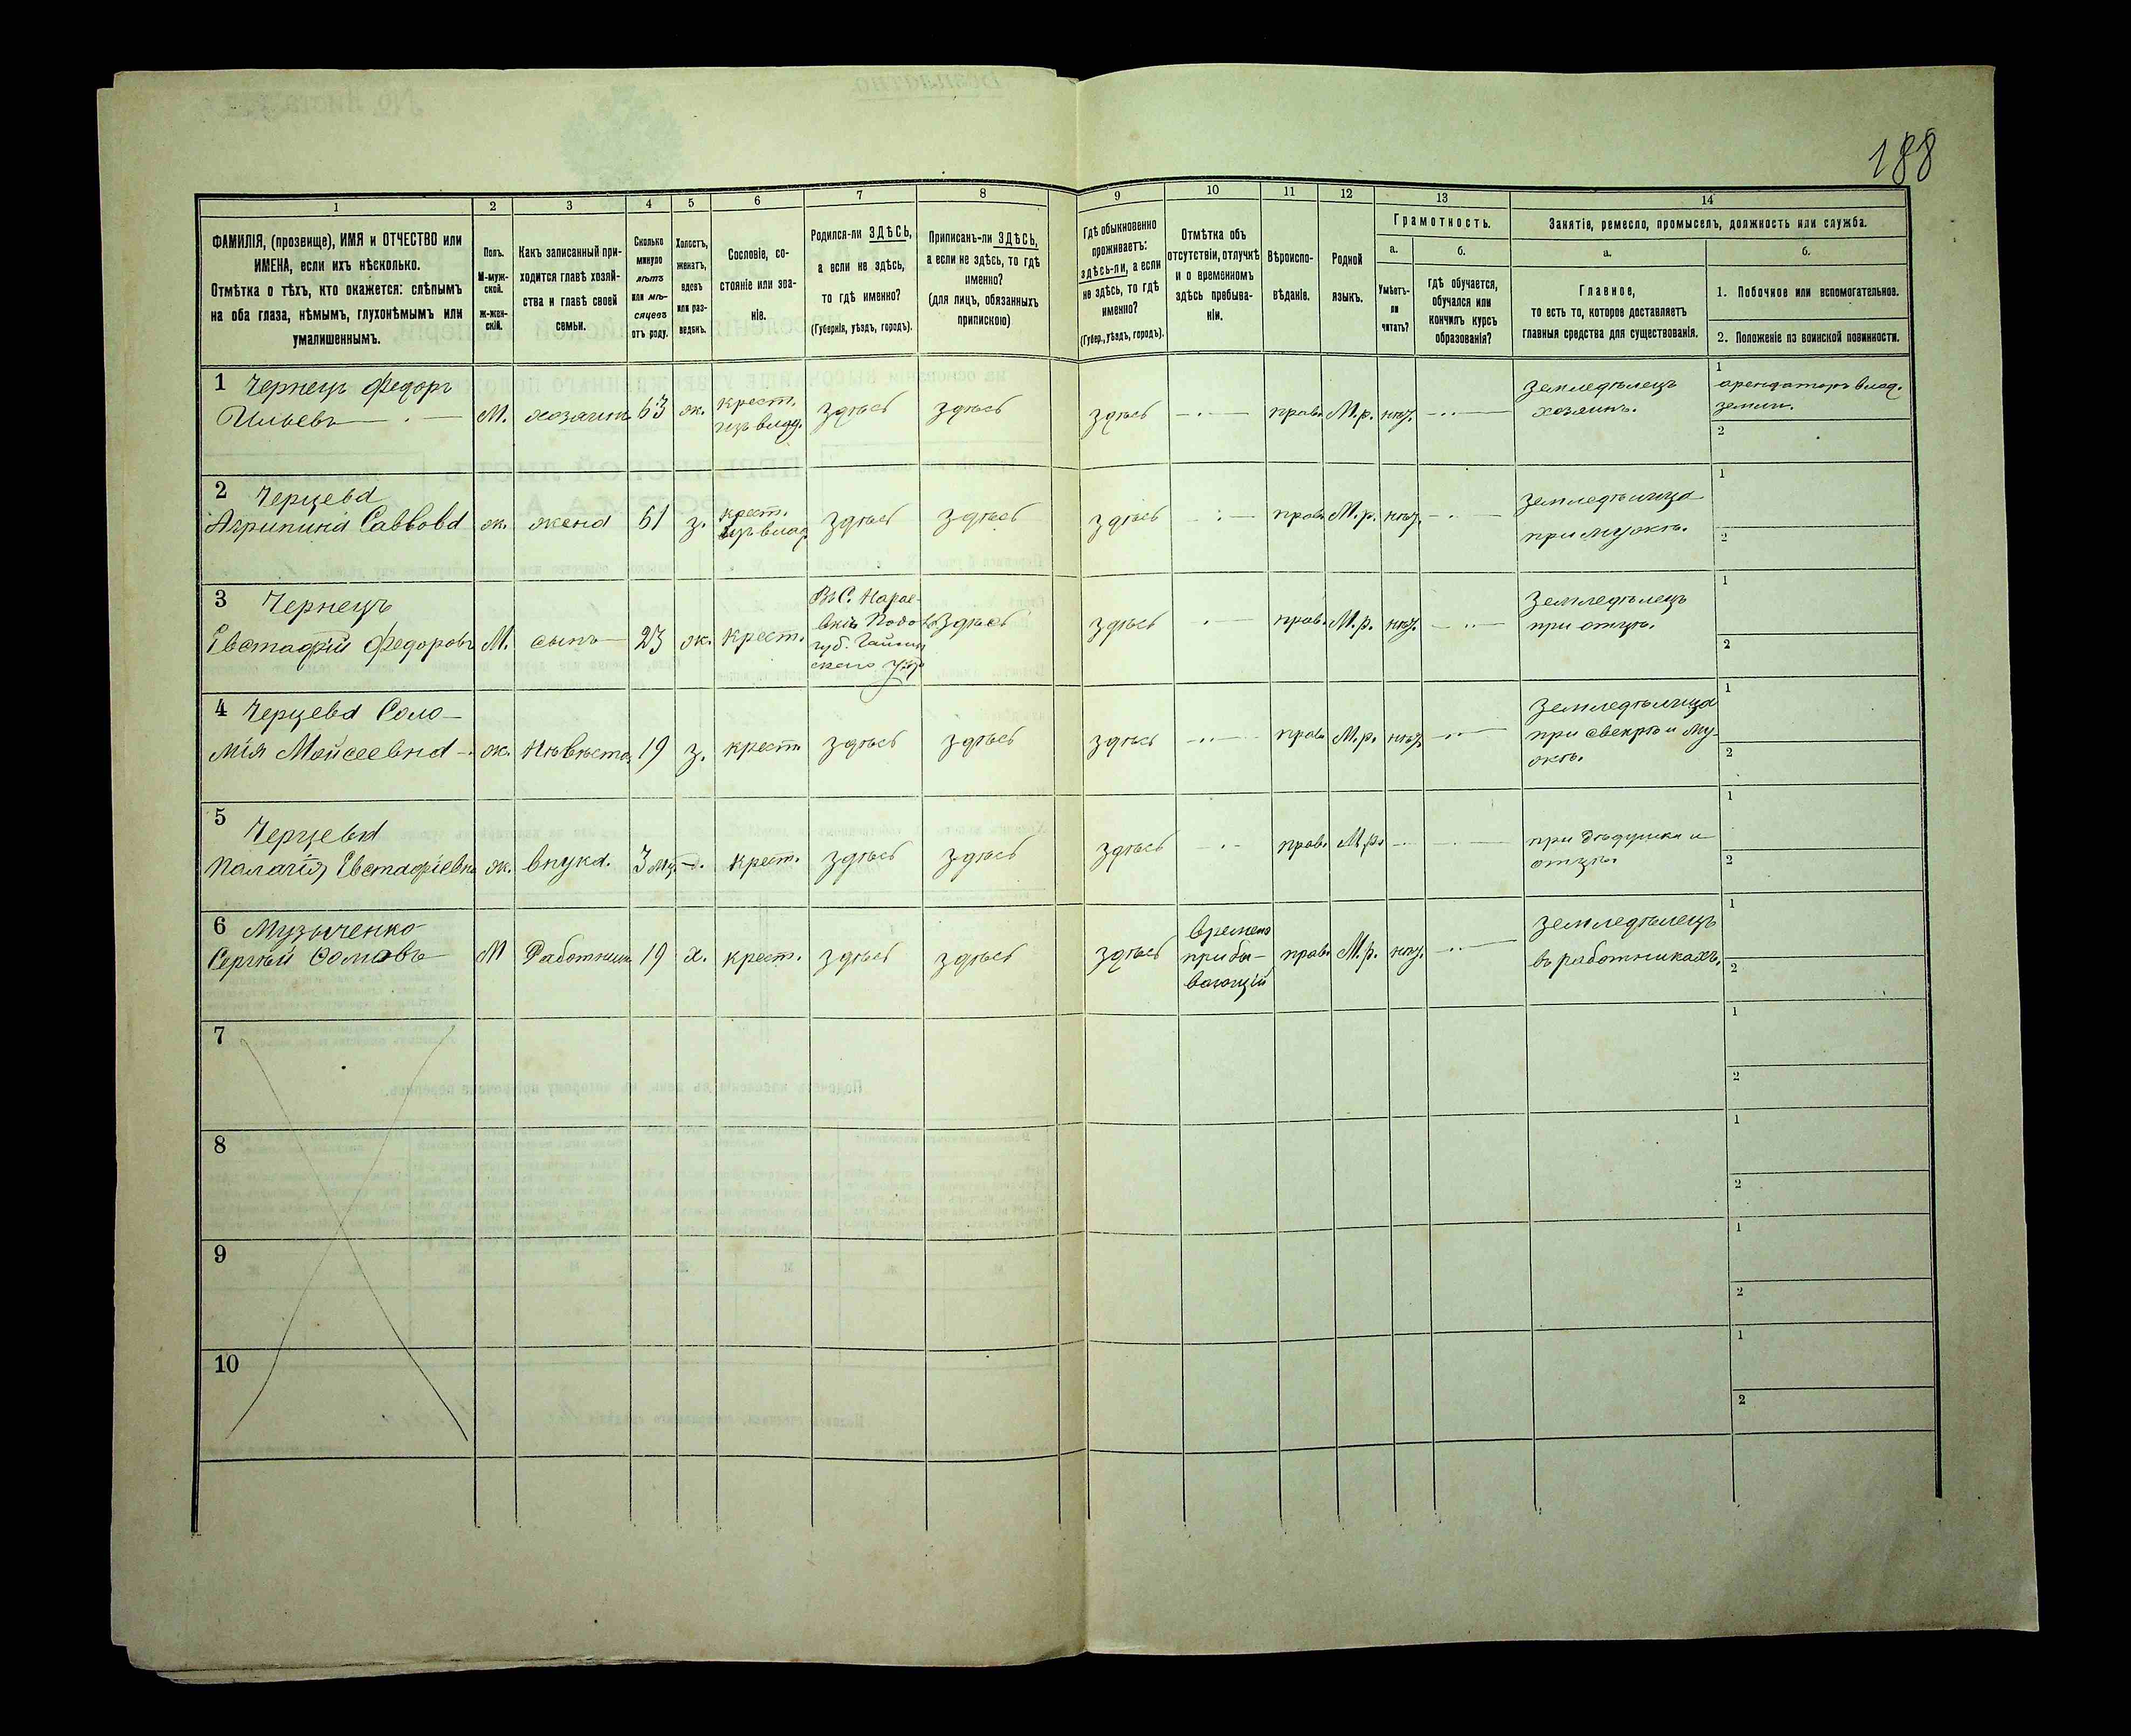 188
1
2
3
4
5
6
7
8
9
10
11
12
13
14
ФАМИЛІЯ, (прозвище), ИМЯ и ОТЧЕСТВО или
ИМЕНА, если ихъ нѣсколько.
Отмѣтка о тѣхъ, кто окажется: слѣпымъ
на оба глаза, нѣмымъ, глухонѣмымъ или
умалишеннымъ.
Полъ.
М-муж-
ской.
ж-жен-
скій.
Какъ записанный при-
ходится главѣ хозяй-
ства и главѣ своей
семьи.
Сколько
минуло
лѣтъ
или мѣ-
сяцевъ
отъ роду.
Холостъ,
женатъ,
вдовъ
или раз-
веденъ.
Сословіе, со-
стояніе или зва-
ніе.
Родился-ли ЗДѢСЬ,
а если не здѣсь,
то гдѣ именно?
(Губернія, уѣздъ, городъ).
Приписанъ-ли ЗДѢСЬ,
а если не здѣсь, то гдѣ
именно?
(для лицъ, обязанныхъ
припискою)
Гдѣ обыкновенно
проживаетъ:
здѣсь-ли, а если
не здѣсь, то гдѣ
именно?
(Губер., уѣздъ, городъ).
Отмѣтка объ
отсутствіи, отлучкѣ
и о временномъ
здѣсь пребыва-
ніи.
Вѣроиспо-
вѣданіе.
Родной
языкъ.
Грамотность.
а.
Умѣетъ-
ли
читать?
б.
гдѣ обучается,
обучался или
кончилъ курсъ
образованія?
Занятіе, ремесло, промыселъ, должность или служба.
а.
Главное,
то есть то, которое доставляетъ
главныя средства для существованія.
б.
1. Побочное или вспомогательное.
2. Положеніе по воинской повинности.
1 Чернецъ Федоръ
Ильевъ
М.
хозяинъ
63
ж.
крест.
изъ влад.
здѣсь
здѣсь
здѣсь
прав.
М.р.
нѣт.
Земледѣлецъ
хозяинъ.
1
арендаторъ влад.
земли.
2
2 Черцева
Агрипина Саввова
ж.
жена
61
з.
крест.
изъ влад.
здѣсь
здѣсь
здѣсь
прав.
М.р.
нѣт.
Земледѣлица
при мужѣ.
1
2
3 Чернецъ
Евстафій Федоровъ
М.
сынъ
23
ж.
крест.
губ. Гайсин
скаго
здѣсь
здѣсь
прав.
М.р.
нѣт.
Земледѣлецъ
при отцѣ.
1
2
4 Черцева Соло-
мія Мойсеевна
ж.
Невѣста
19
з.
крест.
здѣсь
здѣсь
здѣсь
прав.
М.р.
нѣт.
Земледѣлица
при свекрѣ и му-
жѣ.
1
2
5
Черцева
Палагія Евстафіевна
ж.
внука.
3 мц.
крест.
здѣсь
здѣсь
здѣсь
прав.
М.р.
при дѣдушкѣ и
отцѣ.
1
2
6 Музыченко
Сергѣй Фомовъ
М
Работникъ
19
х.
крест.
здѣсь
здѣсь
здѣсь
времено
прибы-
вающій
прав.
М.р.
нѣт.
Земледѣлецъ
въ работникахъ.
1
2
7
1
2
8
1
2
9
1
2
10
1
2